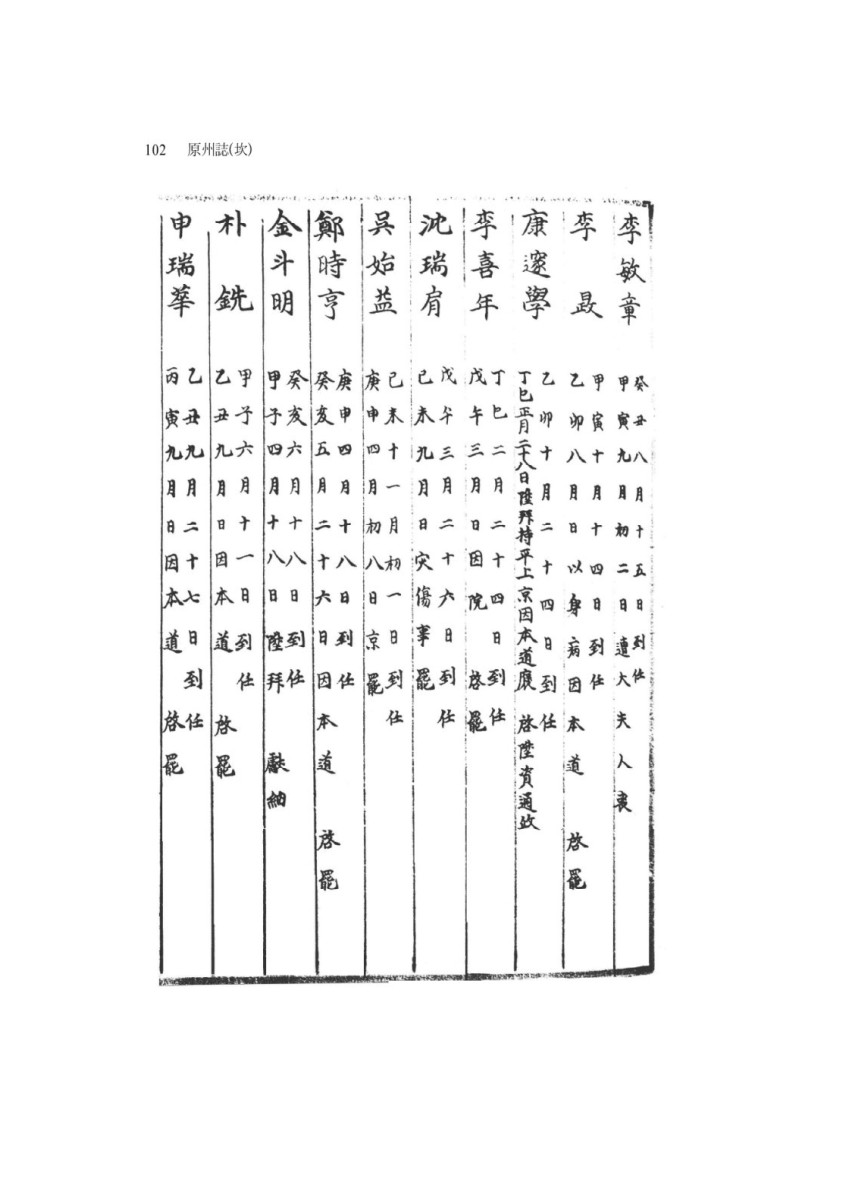 102 原州誌(坎)
李敏章
癸丑八月十五日到任
甲寅九月初二日遭大夫人喪
李
甲寅十月十四日到任
乙卯八月日以身病因本道 啓罷
康 學
乙卯十月二十四日到任
丁巳正月二十八日陞拜持平上京因本道 啓陞資通政
李喜年
丁巳二月二十四日到任
戊午三月日因院 啓罷
沈瑞肩
戊午三月二十六日到任
己未九月日灾傷事罷
吳始益
己未十一月初一日到任
庚申四月初八日京罷
鄭時亨
庚申四月十八日到任
癸亥五月二十六日因本道 啓罷
金斗明
癸亥六月十八日到任
甲子四月十八日陞拜 獻納
朴銑
甲子六月十一日到任
乙丑九月日因本道 啓罷
申瑞華
乙丑九月二十七日到任
丙寅九月日因本道 啓罷